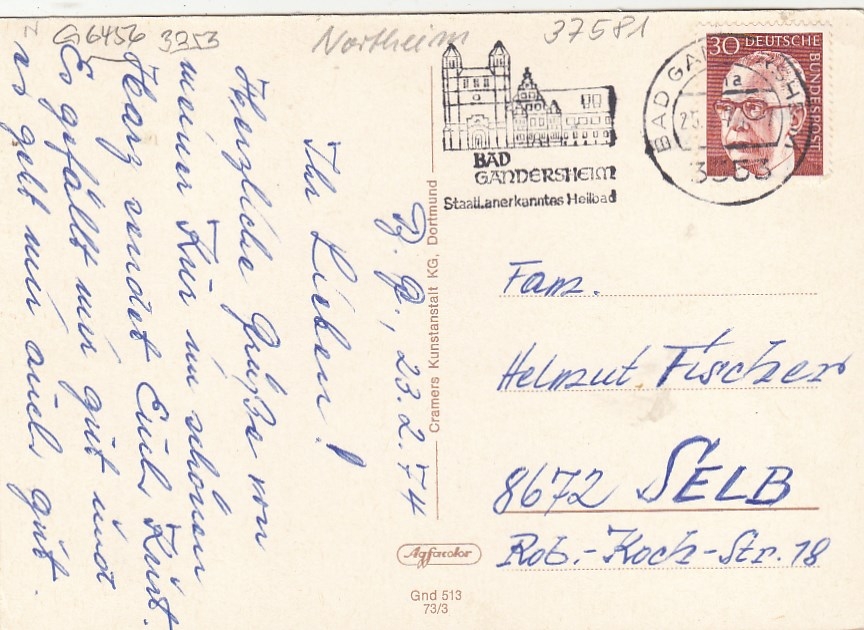 G 6456 3253
Northeim
37581
BAD
GANDERSHEIM
Staatl. anerkanntes Heilbad
BAD GANDERSHEIM
3353
30 DEUTSCHE
BUNDESPOST
B. G., 23.2.74
Ihr Lieben!
Herzliche Grüße von
meiner Kur im schönen
Harz sendet Euch Kurt.
Es gefällt mir gut und
es geht mir auch gut.
Cramers Kunstanstalt KG, Dortmund
Fam.
Helmut Fischer
8672 SELB
Rob.-Koch-Str. 18
Agfacolor
Gnd 513
73/3